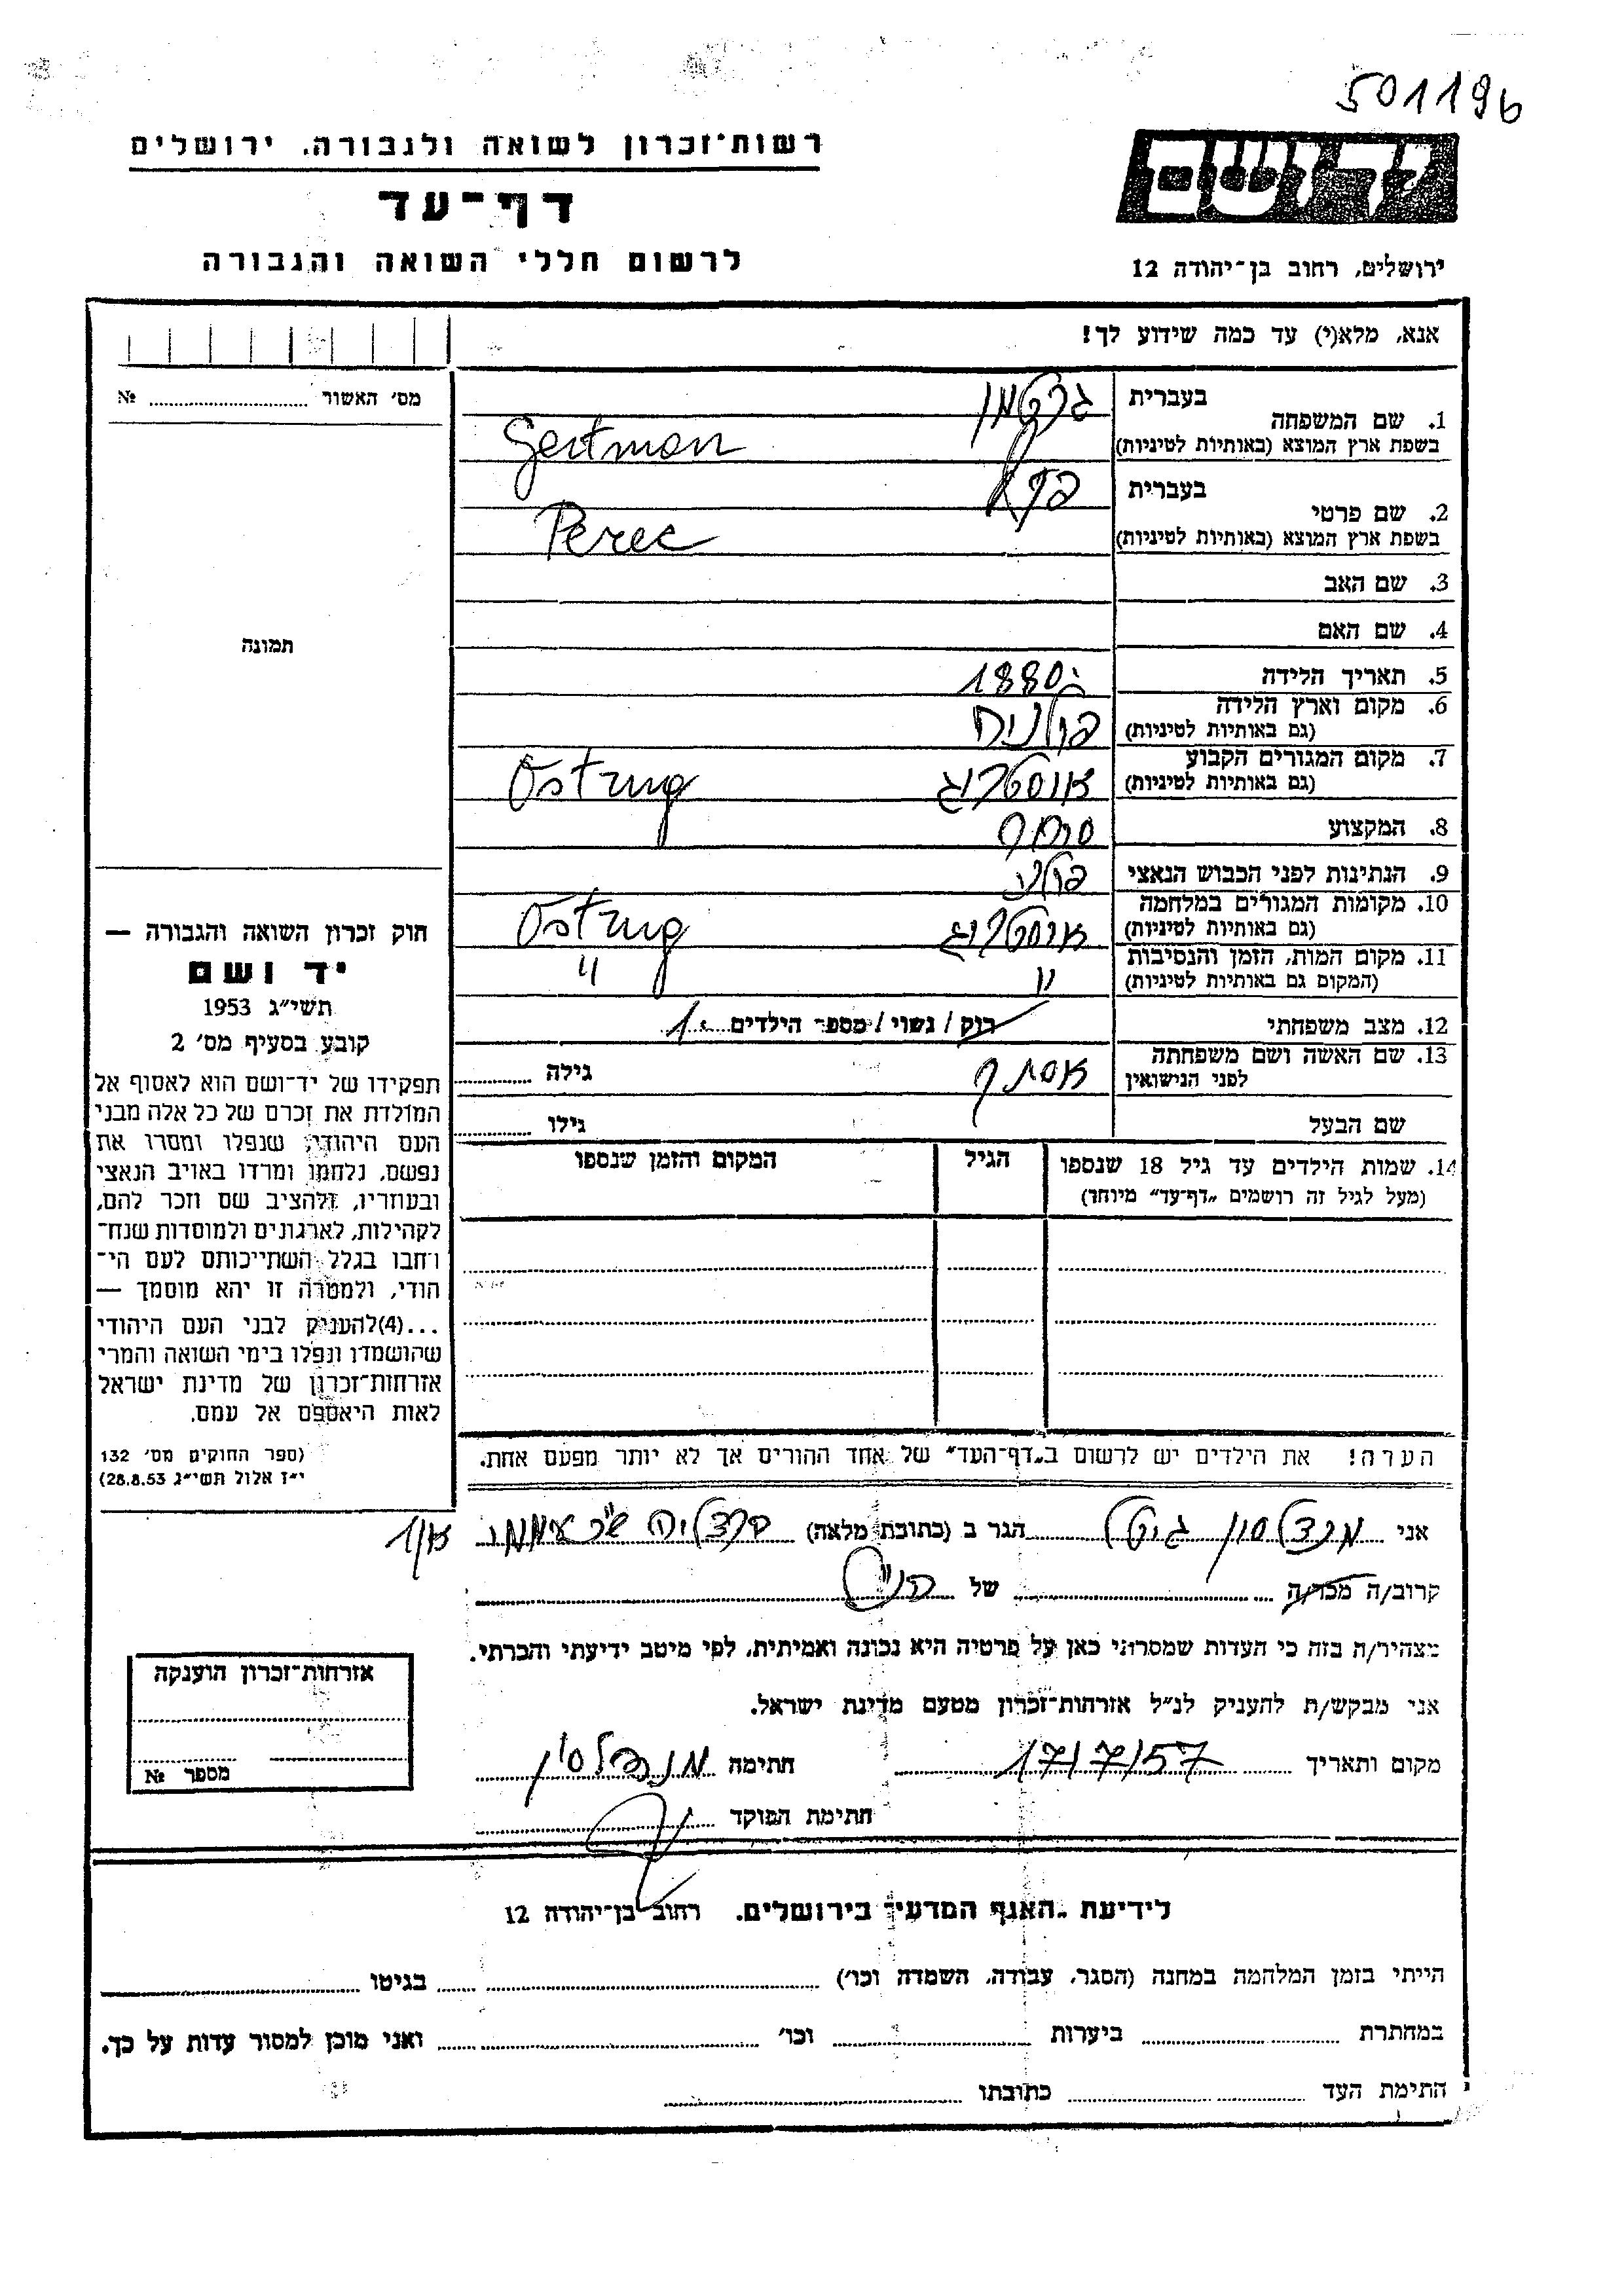 501196
רשות־זכרון לשואה ולגבורה. ירושלים
דף־עד
לרשום חללי השואה והגבורה
יד ושם
ירושלים, רחוב בן־יהודה 12
אנא, מלא(י) עד כמה שידוע לך!
מס׳ האשור № 
תמונה
1. שם המשפחה בעברית גרטמן
בשפת ארץ המוצא (באותיות לטיניות) Gertman
2. שם פרטי בעברית פרץ
בשפת ארץ המוצא (באותיות לטיניות) Perec
3. שם האב
4. שם האם
5. תאריך הלידה 1880
6. מקום וארץ הלידה פולניה
(גם באותיות לטיניות)
7. מקום המגורים הקבוע אוסטרוג Ostrug
(גם באותיות לטיניות)
8. המקצוע סוחר
9. הנתינות לפני הכבוש הנאצי פולני
10. מקומות המגורים במלחמה אוסטרוג Ostrug
(גם באותיות לטיניות)
11. מקום המות, הזמן והנסיבות " "
(המקום גם באותיות לטיניות)
12. מצב משפחתי רווק / נשוי / מספר הילדים 1
13. שם האשה ושם משפחתה אסתר גילה
לפני הנישואין
שם הבעל גילו
14. שמות הילדים עד גיל 18 שנספו הגיל המקום והזמן שנספו
(מעל לגיל זה רושמים „דף־עד" מיוחד)
הערה! את הילדים יש לרשום ב„דף־העד" של אחד ההורים אך לא יותר מפעם אחת.
חוק זכרון השואה והגבורה —
יד ושם
תשי״ג 1953
קובע בסעיף מס׳ 2
תפקידו של יד־ושם הוא לאסוף אל
המולדת את זכרם של כל אלה מבני
העם היהודי, שנפלו ומסרו את
נפשם, נלחמו ומרדו באויב הנאצי
ובעוזריו, ולהציב שם וזכר להם,
לקהילות, לארגונים ולמוסדות שנח־
רחבו בגלל השתייכותם לעם הי־
הודי, ולמטרה זו יהא מוסמך —
...(4) להעניק לבני העם היהודי
שהושמדו ונפלו בימי השואה והמרי
אזרחות־זכרון של מדינת ישראל
לאות היאספם אל עמם.
(ספר החוקים מס׳ 132
י״ז אלול תשי״ג 28.8.53)
אני מנדלסון גיטל הגר ב (כתובת מלאה) הרצליה שכ׳ עממי
קרוב/ה מכר/ה של הנ״ל
מצהיר/ה בזה כי העדות שמסרתי כאן על פרטיה היא נכונה ואמיתית, לפי מיטב ידיעתי והכרתי.
אני מבקש/ת להעניק לנ״ל אזרחות־זכרון מטעם מדינת ישראל.
מקום ותאריך 17/7/57 חתימה מנדלסון
חתימת הפוקד
אזרחות־זכרון הוענקה
מספר №
לידיעת „האגף המדעי" בירושלים. רחוב בן־יהודה 12
הייתי בזמן המלחמה במחנה (הסגר, עבודה, השמדה וכו׳) בגיטו
במחתרת ביערות וכו׳ ואני מוכן למסור עדות על כך.
חתימת העד כתובתו